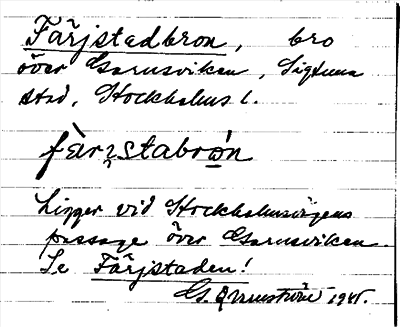 Färjstadbron, bro
över Garnsviken, Sigtuna
stad, Stockholms l.
fàrjstabrón
Ligger vid Stockholmsvägens
passage över Garnsviken.
Se Färjstaden!
G. 1945.